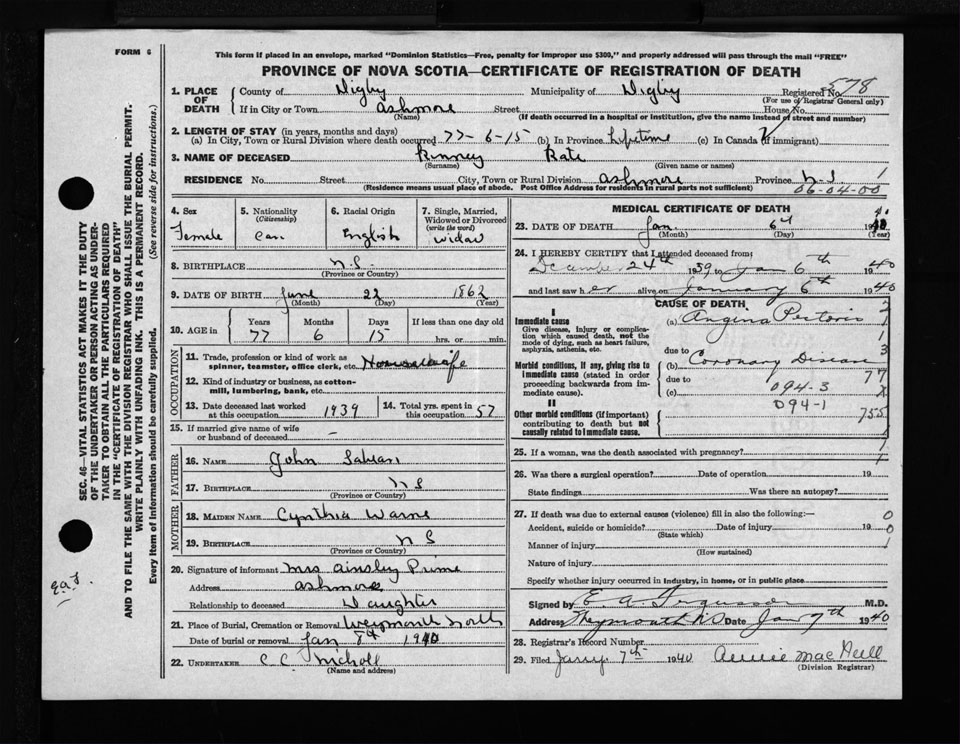 FORM 6
This form if placed in an envelope, marked "Dominion Statistics—Free, penalty for improper use $300," and properly addressed will pass through the mail "FREE"
PROVINCE OF NOVA SCOTIA—CERTIFICATE OF REGISTRATION OF DEATH
578
1. PLACE OF DEATH County of Digby Municipality of Digby Registered No.
(For use of Registrar General only)
If in City or Town Ashmore Street House No.
(Name) (If death occurred in a hospital or institution, give the name instead of street and number)
2. LENGTH OF STAY (in years, months and days)
(a) In City, Town or Rural Division where death occurred 77-6-15 (b) In Province Lifetime (c) In Canada (if immigrant)
3. NAME OF DECEASED Kinney Kate
(Surname) (Given name or names)
RESIDENCE No. Street City, Town or Rural Division Ashmore Province N.S.
(Residence means usual place of abode. Post Office Address for residents in rural parts not sufficient) 06-04-00
4. Sex Female
5. Nationality (Citizenship) Can
6. Racial Origin English
7. Single, Married, Widowed or Divorced (write the word) Widow
8. BIRTHPLACE N.S.
(Province or Country)
9. DATE OF BIRTH June 22 1862
(Month) (Day) (Year)
10. AGE in Years Months Days If less than one day old
77 6 15 hrs. or min.
OCCUPATION
11. Trade, profession or kind of work as spinner, teamster, office clerk, etc. Housewife
12. Kind of industry or business, as cotton-mill, lumbering, bank, etc.
13. Date deceased last worked at this occupation 1939
14. Total yrs. spent in this occupation 57
15. If married give name of wife or husband of deceased —
FATHER
16. NAME John
17. BIRTHPLACE N S
(Province or Country)
MOTHER
18. MAIDEN NAME Cynthia Warne
19. BIRTHPLACE N S
(Province or Country)
20. Signature of informant Mrs Ainsley Prime
Address Ashmore
Relationship to deceased Daughter
21. Place of Burial, Cremation or Removal Weymouth North
Date of burial or removal Jan 8th 1940
22. UNDERTAKER C C Nicholl
(Name and address)
MEDICAL CERTIFICATE OF DEATH
23. DATE OF DEATH Jan. 6th 1940
(Month) (Day) (Year)
24. I HEREBY CERTIFY that I attended deceased from
December 24th 1939 to Jan 6th 1940
and last saw her alive on January 6th 1940
CAUSE OF DEATH
I
Immediate cause
Give disease, injury or complication which caused death, not the mode of dying, such as heart failure, asphyxia, asthenia, etc.
(a) Angina Pectoris
due to
Morbid conditions, if any, giving rise to immediate cause (stated in order proceeding backwards from immediate cause).
(b) Coronary Disease
due to
(c) 094-3
77
II 094-1
Other morbid conditions (if important) contributing to death but not causally related to immediate cause.
755
25. If a woman, was the death associated with pregnancy?
26. Was there a surgical operation? Date of operation 19
State findings Was there an autopsy?
27. If death was due to external causes (violence) fill in also the following:—
Accident, suicide or homicide? Date of injury 19
(State which)
Manner of injury
(How sustained)
Nature of injury
Specify whether injury occurred in industry, in home, or in public place
Signed by E. A. M.D.
Address Weymouth NS Date Jan 7th 1940
28. Registrar's Record Number
29. Filed Jany. 7th 1940 Annie MacNeill
(Division Registrar)
SEC. 46—VITAL STATISTICS ACT MAKES IT THE DUTY
OF THE UNDERTAKER OR PERSON ACTING AS UNDER-
TAKER TO OBTAIN ALL THE PARTICULARS REQUIRED
IN THE "CERTIFICATE OF REGISTRATION OF DEATH"
AND TO FILE THE SAME WITH THE DIVISION REGISTRAR WHO SHALL ISSUE THE BURIAL PERMIT.
WRITE PLAINLY WITH UNFADING INK. THIS IS A PERMANENT RECORD.
Every item of information should be carefully supplied. (See reverse side for instructions.)